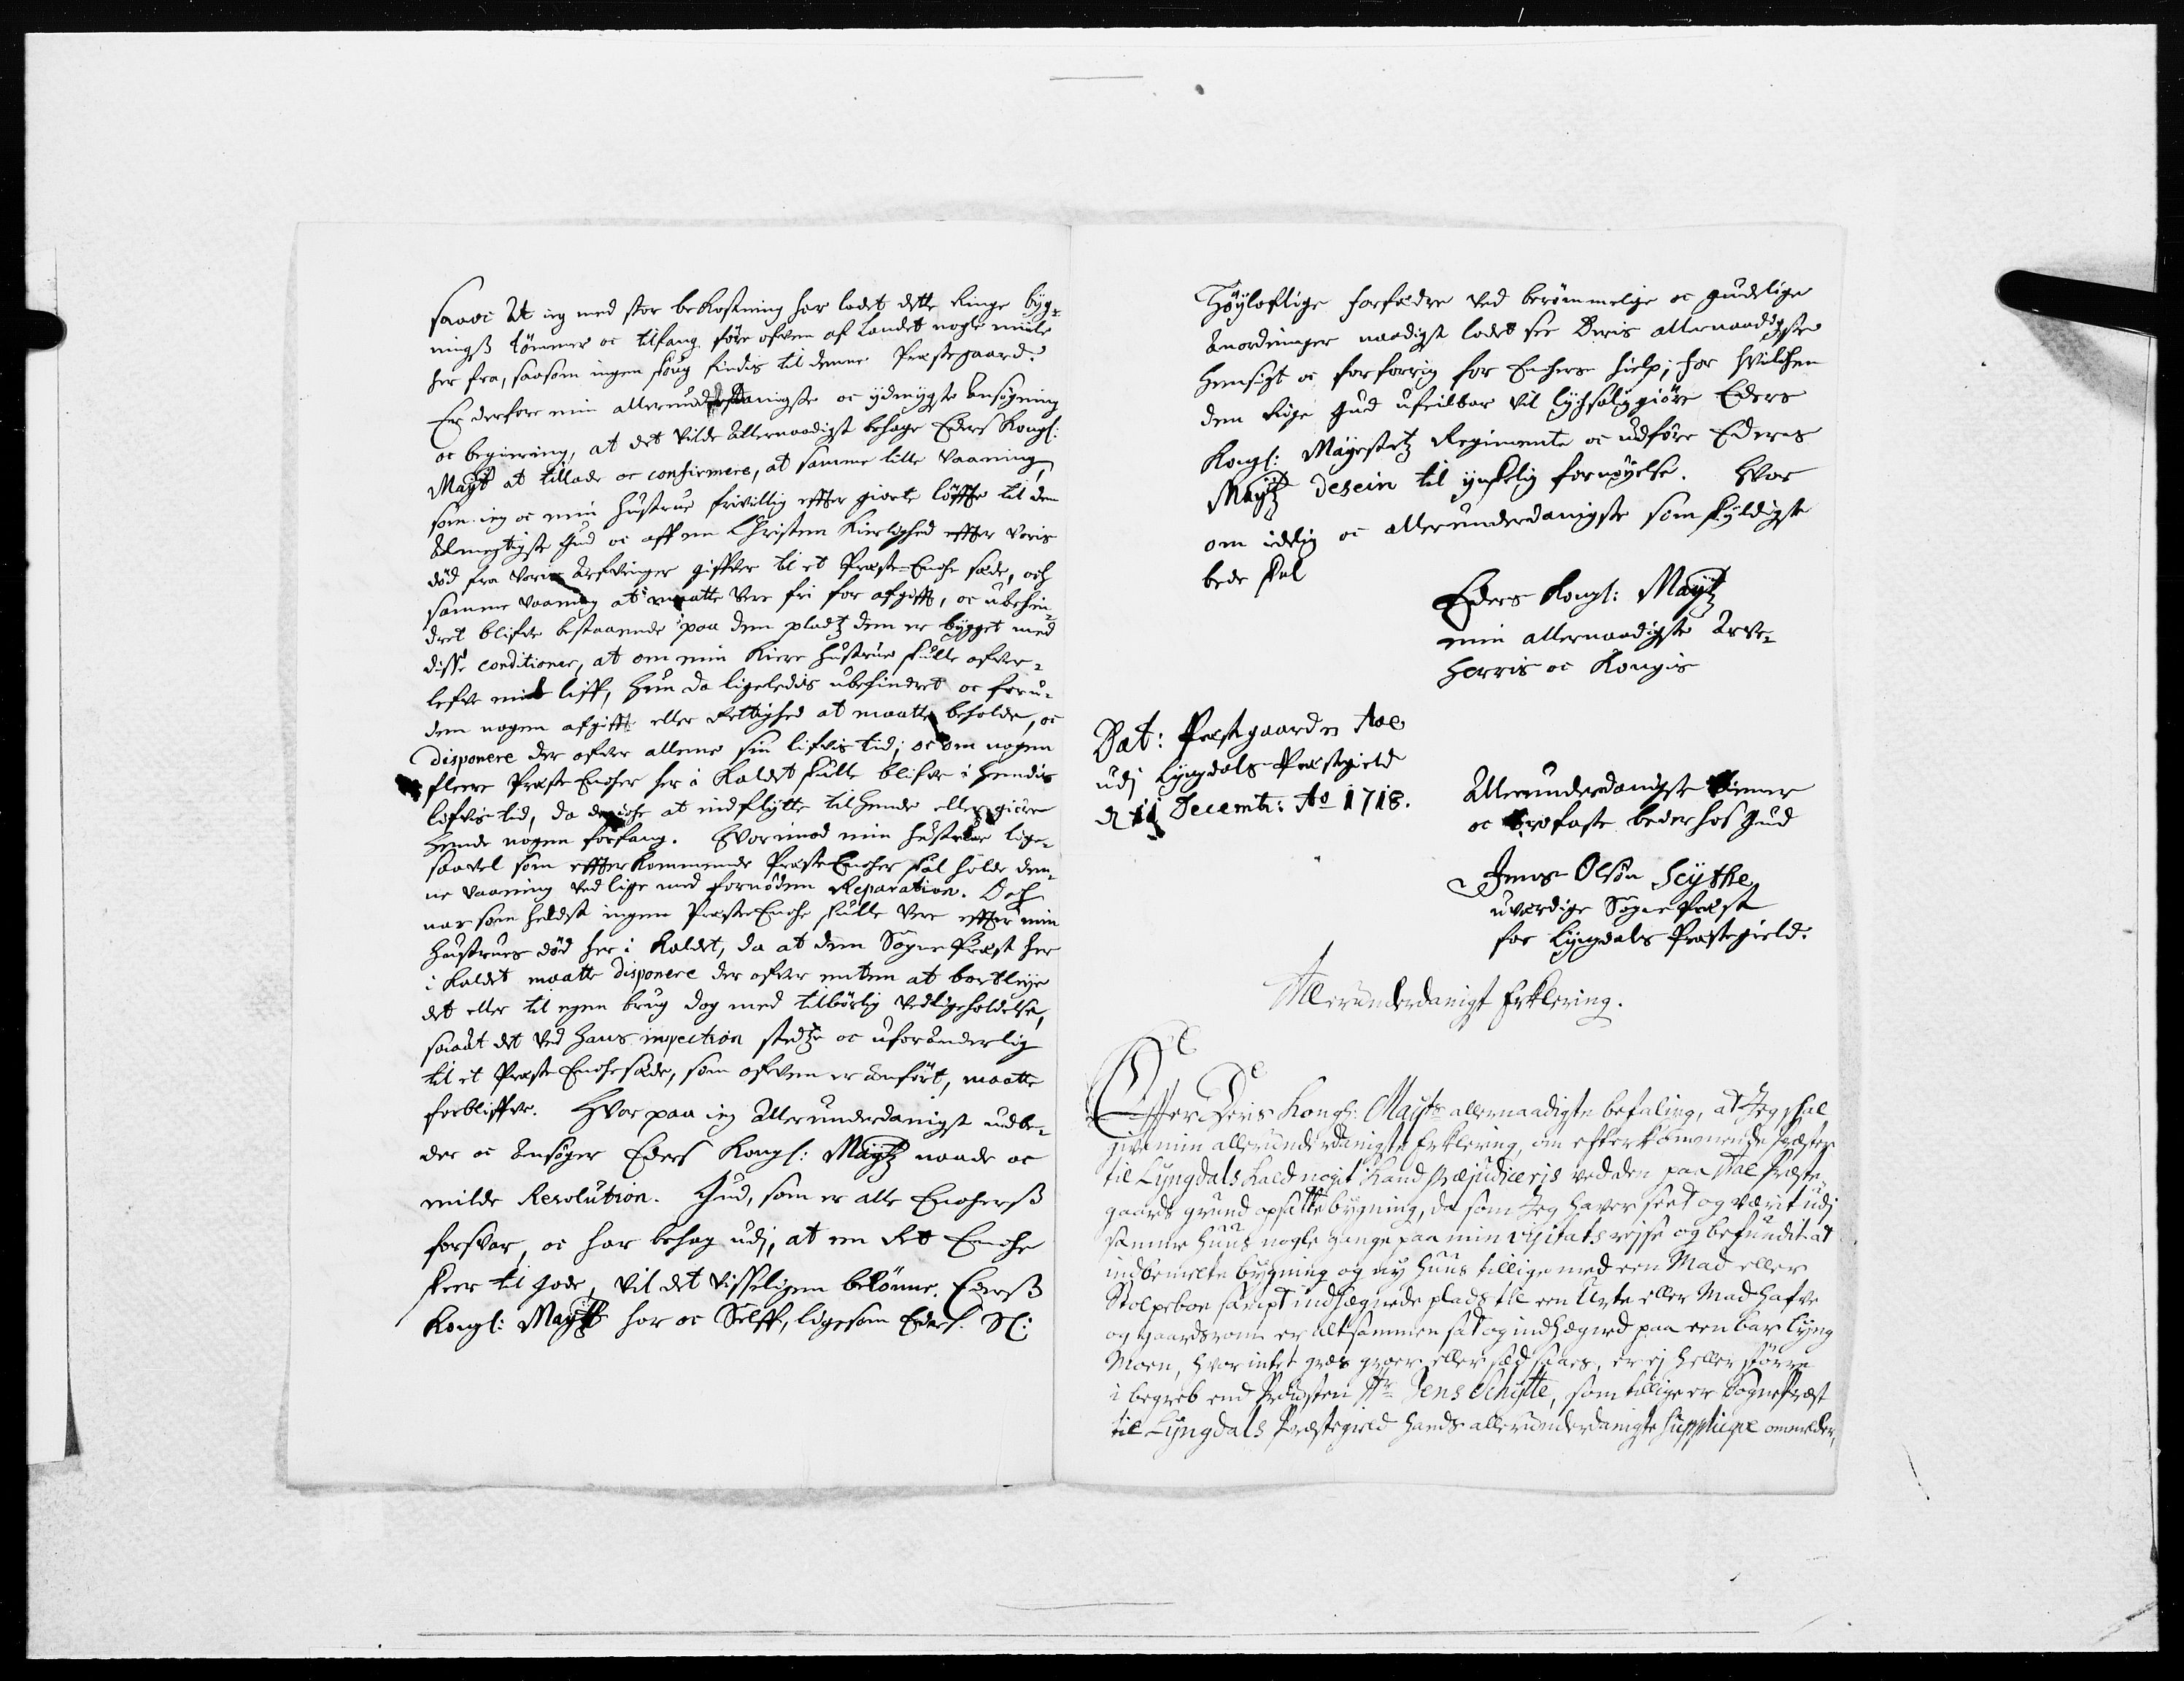 saavi At ieg med stor bekostning har ladet dette Ringe byg-
nings tömmer oc tilfang före ofven af Landet nogle miile
her fra, saasom ingen skoug findis til denne Præstegaard.
Er derfore min allerunderdanigste oc ydmygste Ansögning
oc begiering, at det vilde Allernaadigst behage Eders Kongl:
Mayt at tillade oc confirmere, at samme lille Vaaning,
som ieg oc min Hustrue frivillig effter giorte löffte til den
Allmegtigste Gud oc aff en Christen Kierlighed effter voris
död fra voris Arfvinger giffver til et Præste-Enche sæde, och
samme Vaaning at maatte vere fri for afgifft, oc ubehin-
dret blifve bestaaende paa den pladz den er bygget med
disse conditioner, at om min Kiere Hustrue skulle ofver-
lefve mit liff, hun da ligeledis ubehindret oc foru-
den nogen afgifft eller Rettighed at maatte beholde, oc
disponere der ofver allene sin lifvis tid; oc om nogen
fleere Præste Encher her i Kaldet skulle blifve i hendis
lifvis tid, da at indflytte til hende eller giöre
hende nogen forfang. Hvorimod min Hustrue lige-
saavel som effterkommende Præste Encher skal holde den-
ne Vaaning ved lige med fornöden Reparation. Och
naar som heldst ingen Præste Enche skulle vere effter min
Hustrues död her i Kaldet, da at den Sogne Præst her
i Kaldet maatte disponere der ofver enten at bortleye
det eller til egen brug dog med tilbörlig vedligeholdelse,
saa at det ved hans inspection stedtze oc uforanderlig
til et Præste Enche sæde, som ofven er anfört, maatte
forbliffve. Hvor paa ieg Allerunderdanigst udbe-
der oc Ansöger Eders Kongl: Maytz naade oc
milde Resolution. Gud, som er alle Enchers
forsvar, oc har behag udj, at en Ret Enche
skeer til gode, vil det visseligen belönne. Eders
Kongl: Maytt har oc Selff, ligesom Eders Sl:
Höyloflige forfædre ved berömmelige oc gudelige
Anordninger naadigst ladet see Deris allernaadigste
hensigt oc forsorrig for Enchers hielp; for hvilchen
den Rige Gud ufeilbar vil lychsaliggiöre Eders
Kongl: Mayestetz Regimente oc udföre Eders
Maytz desein til ynskelig fornöyelse. Hvor
om idelig oc allerunderdanigste som skyldigste
bede skal
Eders Kongl: Maytz
min allernaadigste Arve-
Herris oc Kongis
Dat: Præstgaarden Aae
udj Lyngdals Præstegield
d 11 Decemb: Ao 1718.
Allerunderdanigste tiener
oc trofaste beder hos Gud
Jens Olsön Scythe
uværdige Sogne Præst
for Lyngdals Præstegield.
Allerunderdanigst Erklering.
Efter Deris Kongl: Mayts allernaadigste befaling, at Jeg skal
give min allerunderdanigste Erklering, om efterkommende Præster
til Lyngdals Kald noget Kand præjudiceris ved den paa Aae Præste-
gaards grund opsatte bygning, da som Jeg haver seet og værit udj
samme Huus nogle gange paa min visitats rejse og befundet at
indbemelte bygning og ny Huus tillige med een Mad eller
Stolpeboe sampt indhægnede plads til een Urte eller Mad hafve
og gaardsrom er altsammen sat og indhægned paa een bar lyng
Moen, hvor intet græs groer eller sæd saaes, er ej heller större
i begreb end Provsten Hr Jens Schytte, som tillige er Sognepræst
til Lyngdals Præstegield hands allerunderdanigste Supplique ommelder,